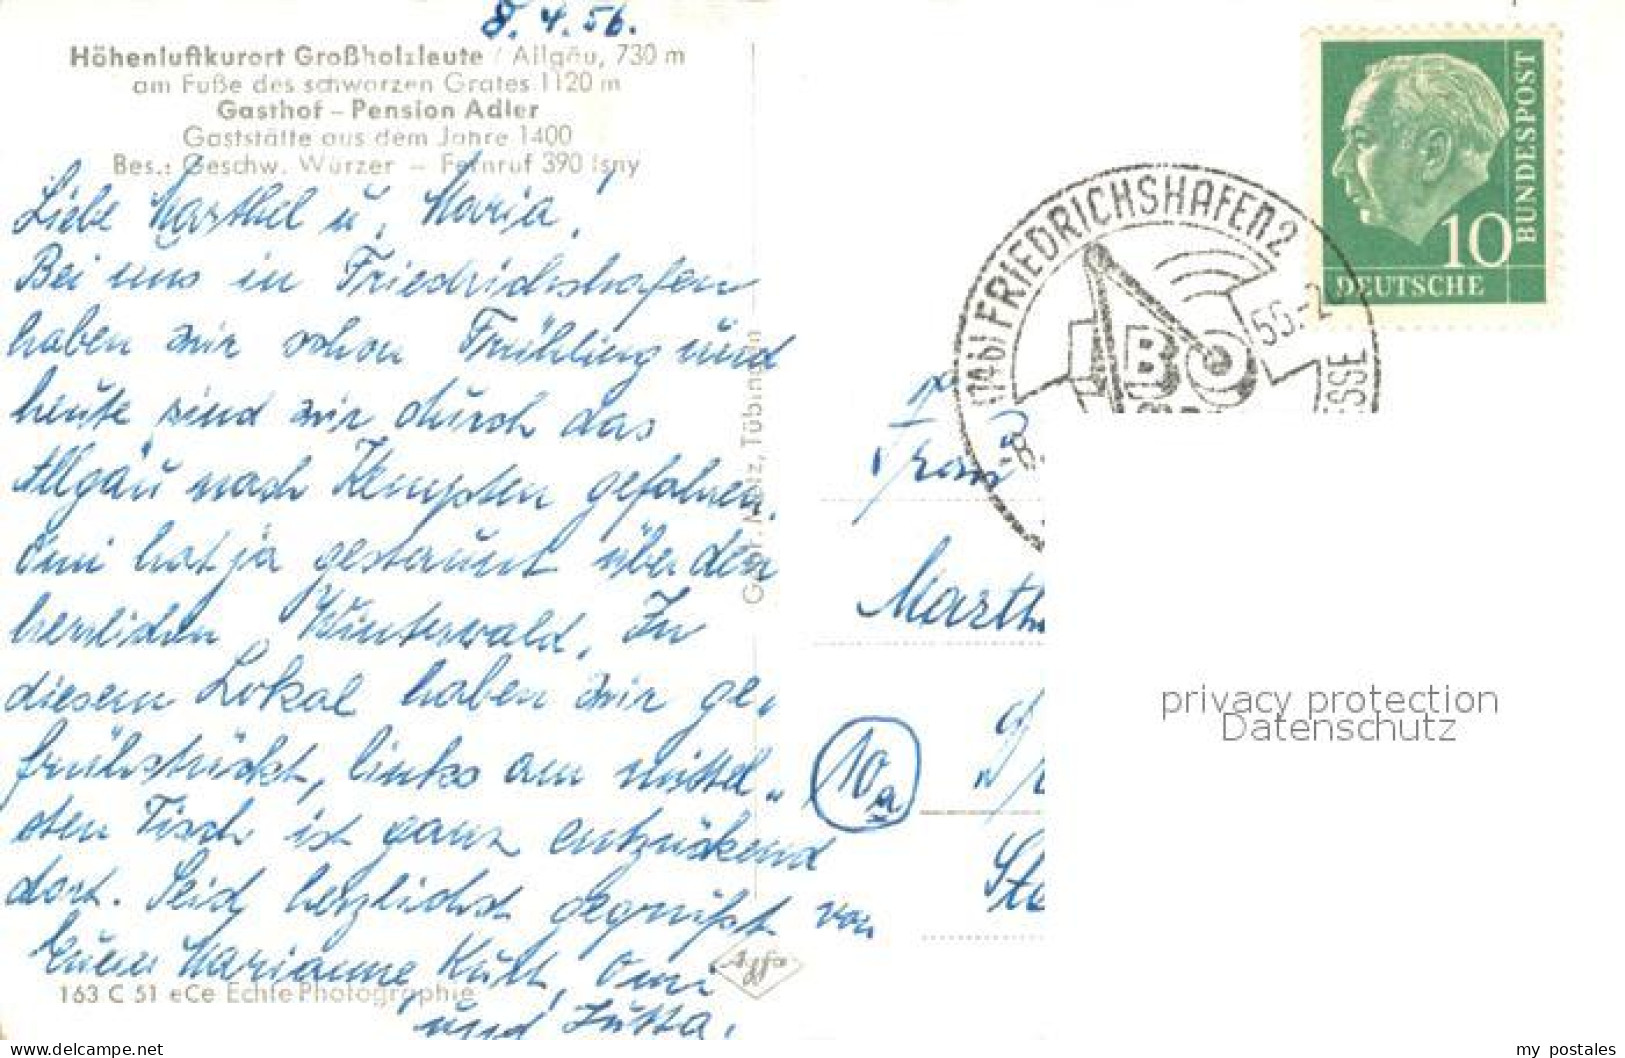 8.4.56.
Höhenluftkurort Großholzleute / Allgäu, 730 m
am Fuße des schwarzen Grates 1120 m
Gasthof – Pension Adler
Gaststätte aus dem Jahre 1400
Bes.: Geschw. Wurzer – Fernruf 390 Isny
Liebe Marthel u. Maria!
Bei uns in Friedrichshafen
haben wir schon Frühling und
heute sind wir durch das
Allgäu nach Kempten gefahren.
Omi hat ja gestaunt über den
herrlichen Winterwald. In
diesem Lokal haben wir ge-
frühstückt, links am mittel-
sten Tisch ist ganz entzückend
dort. Seid herzlichst gegrüßt von
Euern Marianne, Kurt, Omi
und Jutta.
163 C 51 eCe Echte Photographie
Agfa
Tübingen
BUNDESPOST
10
DEUTSCHE
(14b) FRIEDRICHSHAFEN 2
IBO
Frau
Marth
10a
privacy protection
Datenschutz
www.delcampe.net
my_postales